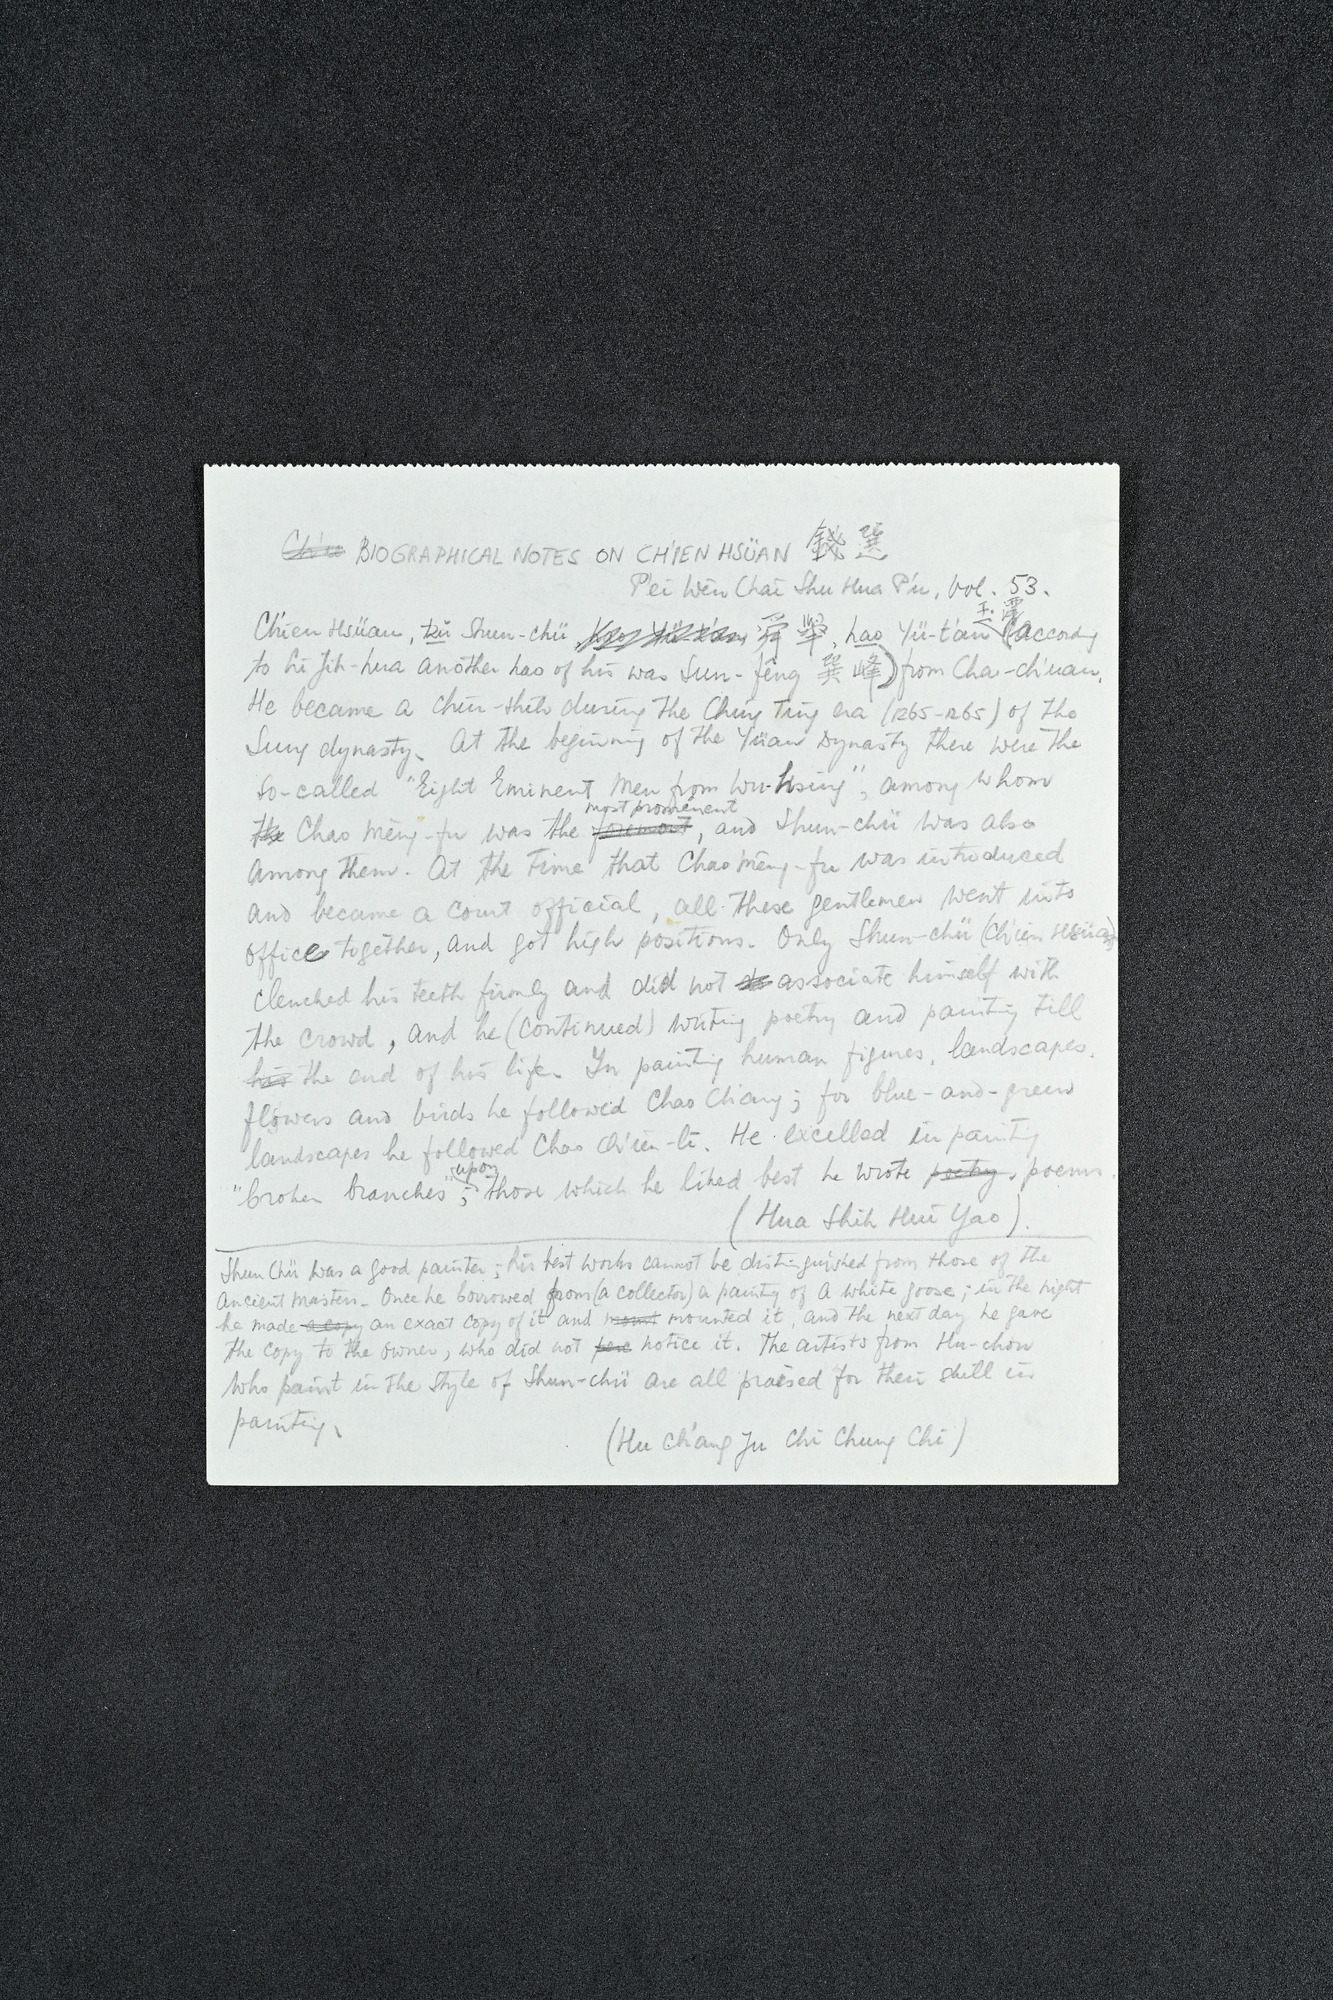 BIOGRAPHICAL NOTES ON CH'IEN HSÜAN 錢 選
P'ei Wên Chai Shu Hua P'u, Vol. 53.
Ch'ien Hsüan, tzŭ Shun-chü 舜 舉, hao Yü-t'an 玉 潭 (according
to Li Jih-hua another hao of his was Sun-fêng 巽 峰) from Cha-ch'uan.
He became a chin-shih during the Ching Ting era (1265-1265) of the
Sung dynasty. At the beginning of the Yüan Dynasty there were the
so-called "Eight Eminent Men from Wu-hsing", among whom
Chao Mêng-fu was the most prominent, and Shun-chü was also
among them. At the time that Chao Mêng-fu was introduced
and became a court official, all these gentlemen went into
office together, and got high positions. Only Shun-chü (Ch'ien Hsüan)
clenched his teeth firmly and did not associate himself with
the crowd, and he (continued) writing poetry and painting till
the end of his life. In painting human figures, landscapes,
flowers and birds he followed Chao Ch'ang; for blue-and-green
landscapes he followed Chao Ch'ien-li. He excelled in painting
"broken branches"; upon those which he liked best he wrote poems.
(Hua Shih Hui Yao).
Shun Chü was a good painter; his best works cannot be distinguished from those of the
ancient masters. Once he borrowed from (a collector) a painting of a white goose; in the night
he made an exact copy of it and mounted it, and the next day he gave
the copy to the owner, who did not notice it. The artists from Hu-chou
who paint in the style of Shun-chü are all praised for their skill in
painting.
(Hu Ch'ang Ju Chi Chung Chi)